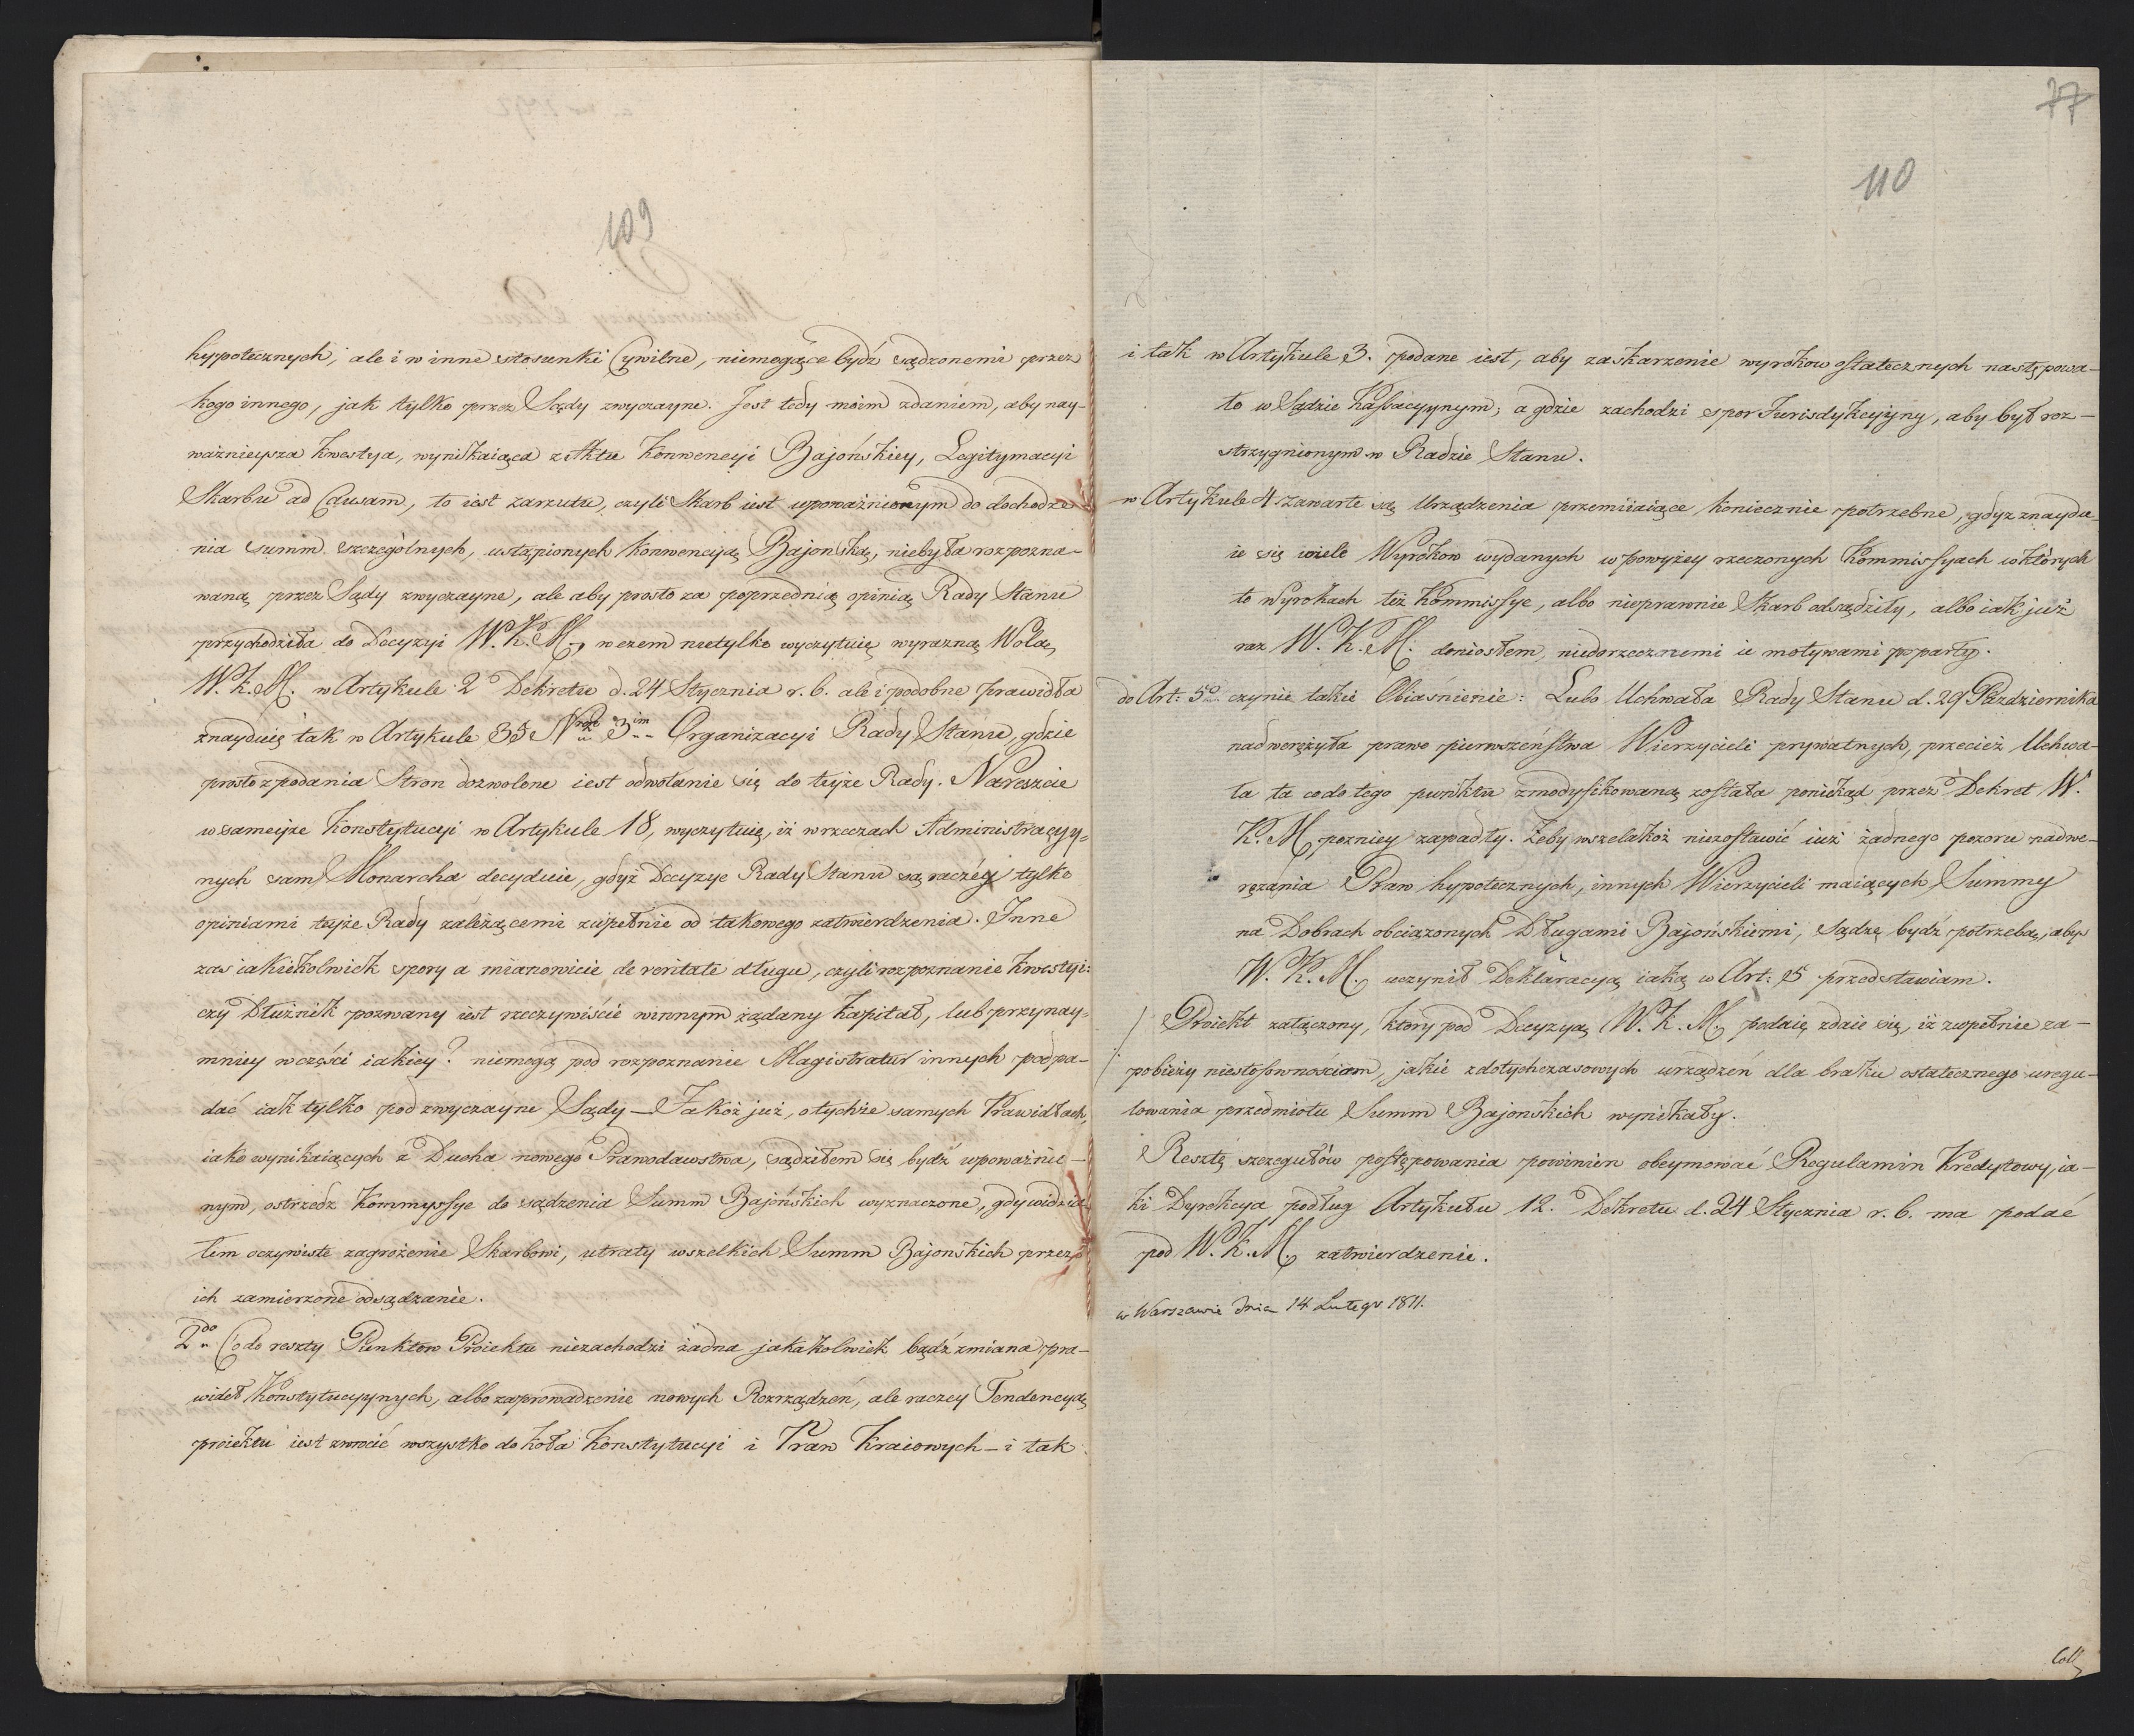 109
hypotecznych, ale i w inne stosunki Cywilne, niemogące bydź sądzonemi przez
kogo innego, jak tylko przez Sądy zwyczayne. Jest tedy moim zdaniem, aby nay-
ważnieysza kwestya, wynikaiąca z Aktu Konwencyi Bajońskiey, Legitymacyi
Skarbu ad Causam, to iest zarzutu, czyli Skarb iest upoważnionym do dochodze
nia summ szczególnych, ustąpionych Konwencyją Bajonską, niebyła rozpozna-
waną przez Sądy zwyczayne, ale aby prosto za poprzednią opinią Rady Stanu
przychodziła do Decyzyi W. K. M., w czem nietylko wyczytuię wyrazną Wolą
W. K. M. w Artykule 2 Dekretu d. 24 Stycznia r. b. ale i podobne prawidła
znayduię tak w Artykule 35 Nro 3im Organizacyi Rady Stanu, gdzie
prosto z podania Stron dozwolone iest odwołanie się do teyże Rady. Nareszcie
w sameyże Konstytucyi w Artykule 18, wyczytuię, iż w rzeczach Administracyy-
nych sam Monarcha decyduie, gdyż Decyzye Rady Stanu są raczéy tylko
opiniami teyże Rady zależącemi zupełnie od takowego zatwierdzenia. Inne
zaś iakiekolwiek spory a mianowicie de veritate długu, czyli rozpoznanie kwestyi:
czy Dłużnik pozwany iest rzeczywiście winnym żądany Kapitał, lub przynay-
mniey w części iakiey? niemogą pod rozpoznanie Magistratur innych podpa-
dać iak tylko pod zwyczayne Sądy – Jakoż już, o tychże samych Prawidłach,
iako wynikaiących z Ducha nowego Prawodawstwa, sądziłem się bydź upoważnio-
nym, ostrzedz Kommyssye do sądzenia Summ Bajońskich wyznaczone, gdy widzia-
łem oczywiste zagrożenie Skarbowi, utraty wszelkich Summ Bajonskich przez
ich zamierzone odsądzanie.
2do Co do reszty Punktow Proiektu niezachodzi żadna jakakolwiek bądź zmiana pra-
wideł Konstytucyynych, albo zaprowadzenie nowych Rozrządzeń, ale raczey Tendencyą
proiektu iest zwrócić wszystko do koła Konstytucyi i Praw Kraiowych – i tak
77
110
i tak w Artykule 3. podane iest, aby zaskarzenie wyrokow ostatecznych następowa-
ło w Sądzie Kassacyynym, a gdzie zachodzi spor Jurisdykcyyny, aby był roz-
strzygnionym w Radzie Stanu.
w Artykule 4 zawarte są Urządzenia przemiiaiące koniecznie potrzebne, gdyż znaydu-
ie się wiele Wyrokow wydanych w powyżey rzeczonych Kommissyach w których
to Wyrokach też Kommissye, albo nieprawnie Skarb odsądziły, albo iak już
raz W. K. M. doniosłem, niedorzecznemi ie motywami poparły.
do Art: 5o czynie takie Obiaśnienie: Lubo Uchwała Rady Stanu d. 29 Października
nadwerężyła prawo pierwszeństwa Wierzycieli prywatnych, przecież Uchwa-
ła ta co do tego punktu zmodyfikowaną została poniekąd przez Dekret W.
K. M. pozniey zapadły. Żeby wszelakoż niezostawić iuż żadnego pozoru nadwe-
rężania Praw hypotecznych, innych Wierzycieli maiących Summy
na Dobrach obciążonych Długami Bajońskiemi, Sądzę bydź potrzebą, aby
W. K. M. uczynił Deklaracyą iaką w Art: 5 przedstawiam.
Proiekt załączony, ktory pod Decyzyą W. K. M. podaię zdaie się, iż zupełnie za-
pobieży niestosownościom, jakie z dotychczasowych urządzeń dla braku ostatecznego uregu-
lowania przedmiotu Summ Bajonskich wynikały.
Resztę szczegułów postępowania powinien obeymować Regulamin Kredytowy, ia-
ki Dyrekcya podług Artykułu 12. Dekretu d. 24 Stycznia r. b. ma podać
pod W. K. M. zatwierdzenie.
w Warszawie dnia 14 Lutego 1811.